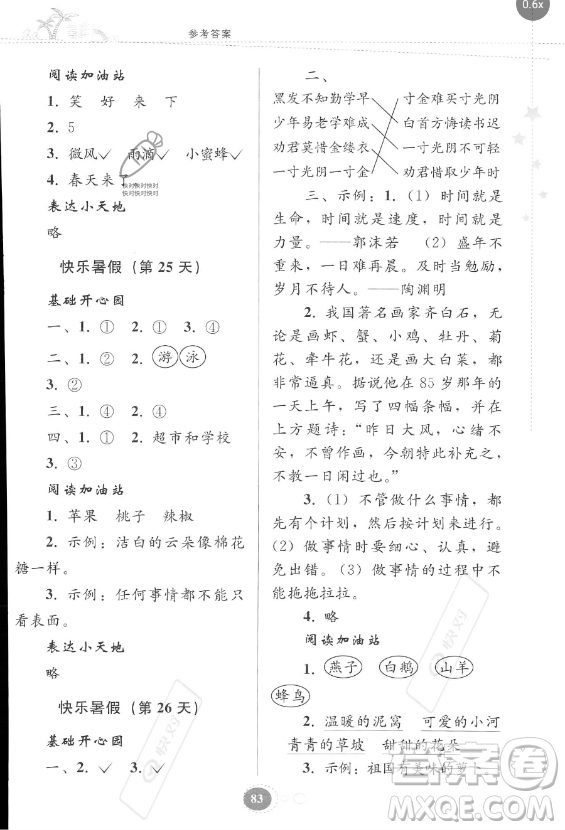 0.6x
参考答案
阅读加油站
1. 笑 好 来 下
2. 5
3. 微风✓ 雨滴✓ 小蜜蜂✓
4. 春天来
快对快对快对快对
快对快对快对快对
表达小天地
略
快乐暑假（第 25 天）
基础开心园
一、1. ① 2. ① 3. ④
二、1. ② 2. 游 泳
3. ②
三、1. ④ 2. ④
四、1. ① 2. 超市和学校
3. ③
阅读加油站
1. 苹果 桃子 辣椒
2. 示例：洁白的云朵像棉花
糖一样。
3. 示例：任何事情都不能只
看表面。
表达小天地
略
快乐暑假（第 26 天）
基础开心园
一、2. ✓ 3. ✓
二、
黑发不知勤学早 一寸金难买寸光阴
少年易老学难成 白首方悔读书迟
劝君莫惜金缕衣 一寸光阴不可轻
一寸光阴一寸金 劝君惜取少年时
三、示例：1.（1）时间就是
生命，时间就是速度，时间就是
力量。——郭沫若 （2）盛年不
重来，一日难再晨。及时当勉励，
岁月不待人。——陶渊明
2. 我国著名画家齐白石，无
论是画虾、蟹、小鸡、牡丹、菊
花、牵牛花，还是画大白菜，都
非常逼真。据说他在 85 岁那年的
一天上午，写了四幅条幅，并在
上方题诗：“昨日大风，心绪不
安，不曾作画，今朝特此补充之，
不教一日闲过也。”
3.（1）不管做什么事情，都
先有个计划，然后按计划来进行。
（2）做事情时要细心、认真，避
免出错。（3）做事情的过程中不
能拖拖拉拉。
4. 略
阅读加油站
1. 燕子 白鹅 山羊
蜂鸟
2. 温暖的泥窝 可爱的小河
青青的草坡 甜甜的花朵
3. 示例：祖国有美味的萝卜
83
快对
快对
答案圈
MXQE.COM